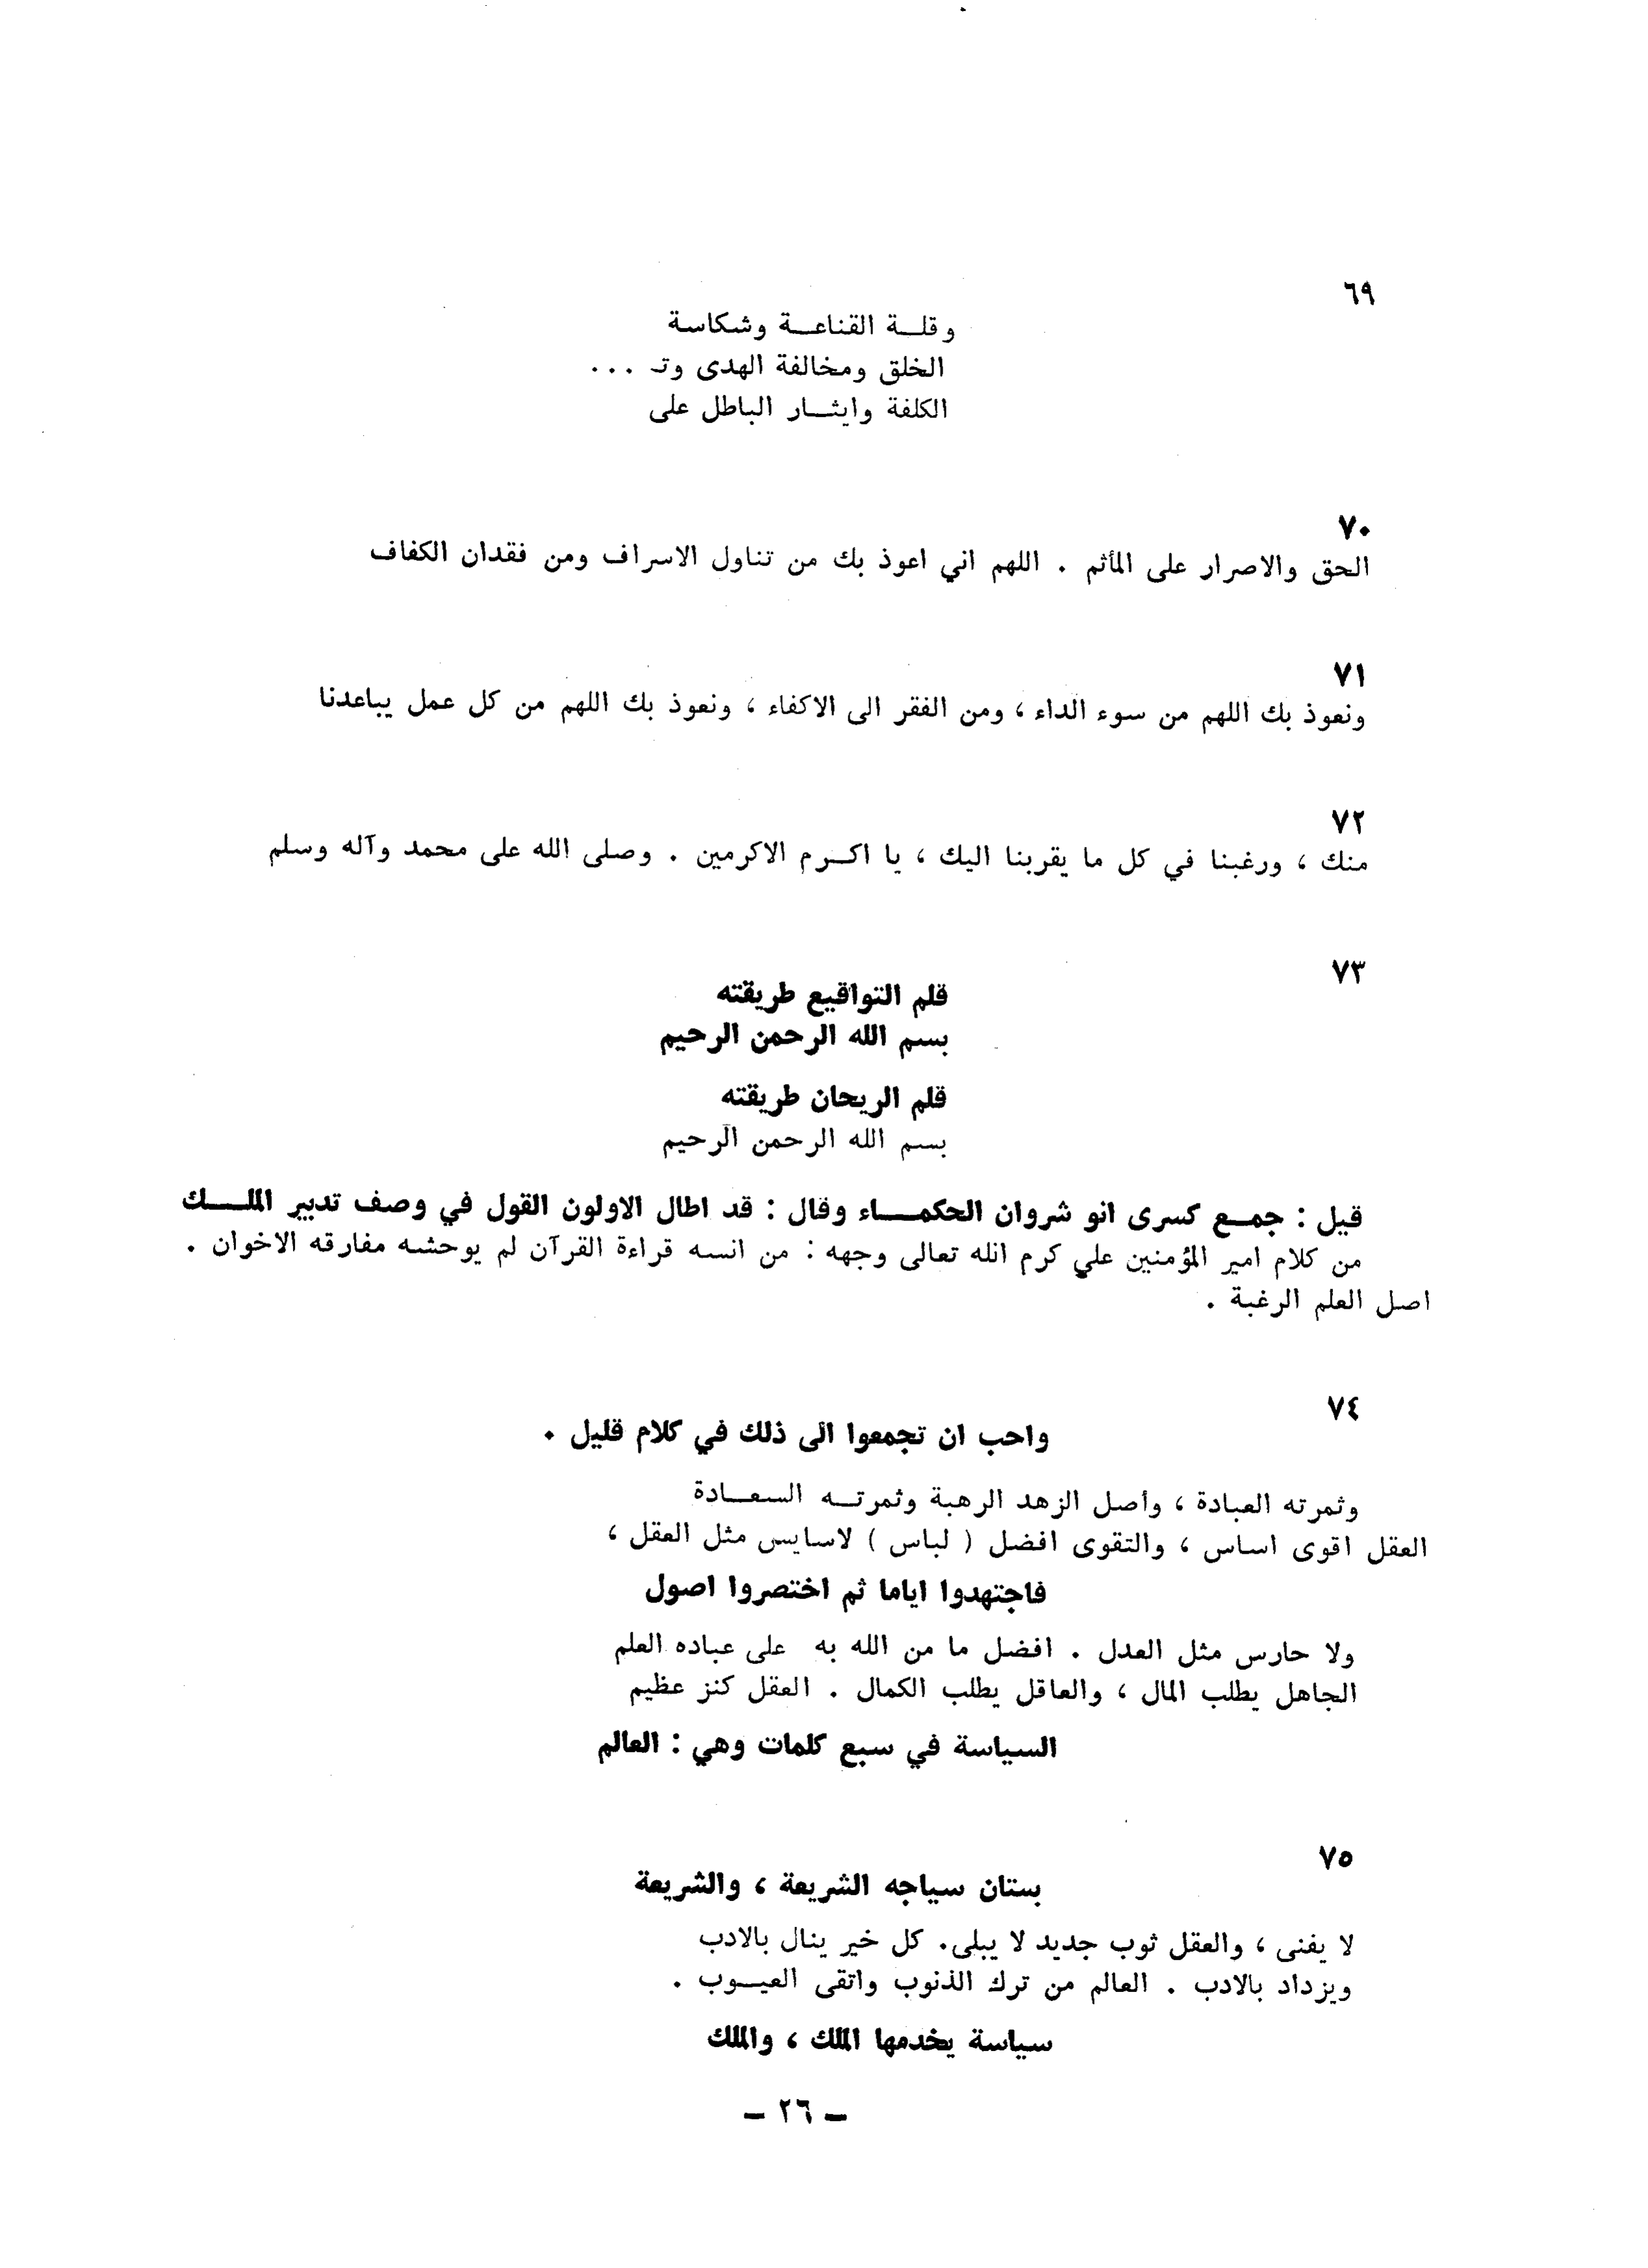 ٦٩
وقلة القناعة وشكاسة
الخلق ومخالفة الهدى وتـ ...
الكلفة وايثار الباطل على
٧٠
الحق والاصرار على المأثم . اللهم اني اعوذ بك من تناول الاسراف ومن فقدان الكفاف
٧١
ونعوذ بك اللهم من سوء الداء ، ومن الفقر الى الاكفاء ، ونعوذ بك اللهم من كل عمل يباعدنا
٧٢
منك ، ورغبنا في كل ما يقربنا اليك ، يا اكرم الاكرمين . وصلى الله على محمد وآله وسلم
٧٣
قلم التواقيع طريقته
بسم الله الرحمن الرحيم
قلم الريحان طريقته
بسم الله الرحمن الرحيم
قيل : جمع كسرى انو شروان الحكماء وقال : قد اطال الاولون القول في وصف تدبير الملك
من كلام امير المؤمنين علي كرم الله تعالى وجهه : من انسه قراءة القرآن لم يوحشه مفارقه الاخوان .
اصل العلم الرغبة .
٧٤
واحب ان تجمعوا الى ذلك في كلام قليل .
وثمرته العبادة ، وأصل الزهد الرهبة وثمرته السعادة
العقل اقوى اساس ، والتقوى افضل ( لباس ) لاسايس مثل العقل ،
فاجتهدوا اياما ثم اختصروا اصول
ولا حارس مثل العدل . افضل ما من الله به على عباده العلم
الجاهل يطلب المال ، والعاقل يطلب الكمال . العقل كنز عظيم
السياسة في سبع كلمات وهي : العالم
٧٥
بستان سياجه الشريعة ، والشريعة
لا يفنى ، والعقل ثوب جديد لا يبلى. كل خير ينال بالادب
ويزداد بالادب . العالم من ترك الذنوب واتقى العيوب .
سياسة يخدمها الملك ، والملك
– ٢٦ –